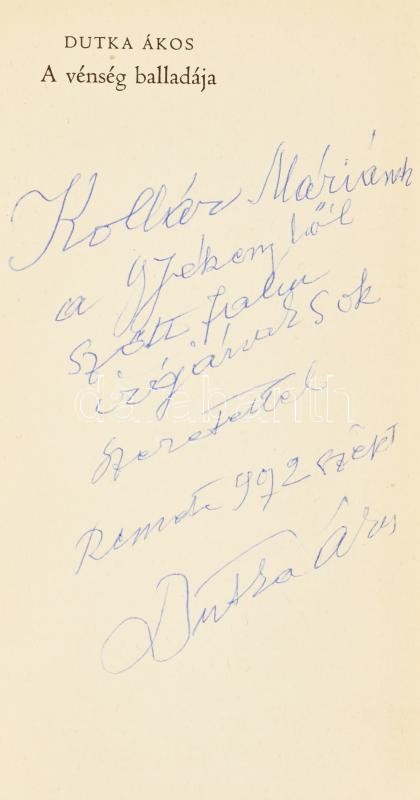 DUTKA ÁKOS
A vénség balladája
Kollár Máriának
a gyékényből
szőtt falu
sok
szeretettel
Remete 972 szept
Dutka Ákos
darabanth